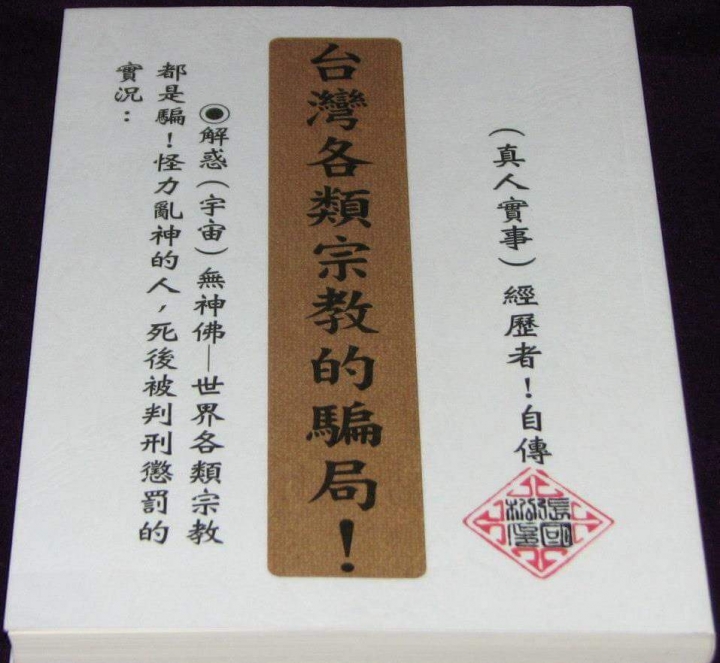 （真人實事）經歷者！自傳
台灣各類宗教的騙局！
◉解惑（宇宙）無神佛—世界各類宗教
都是騙！怪力亂神的人，死後被判刑懲罰的
實況：